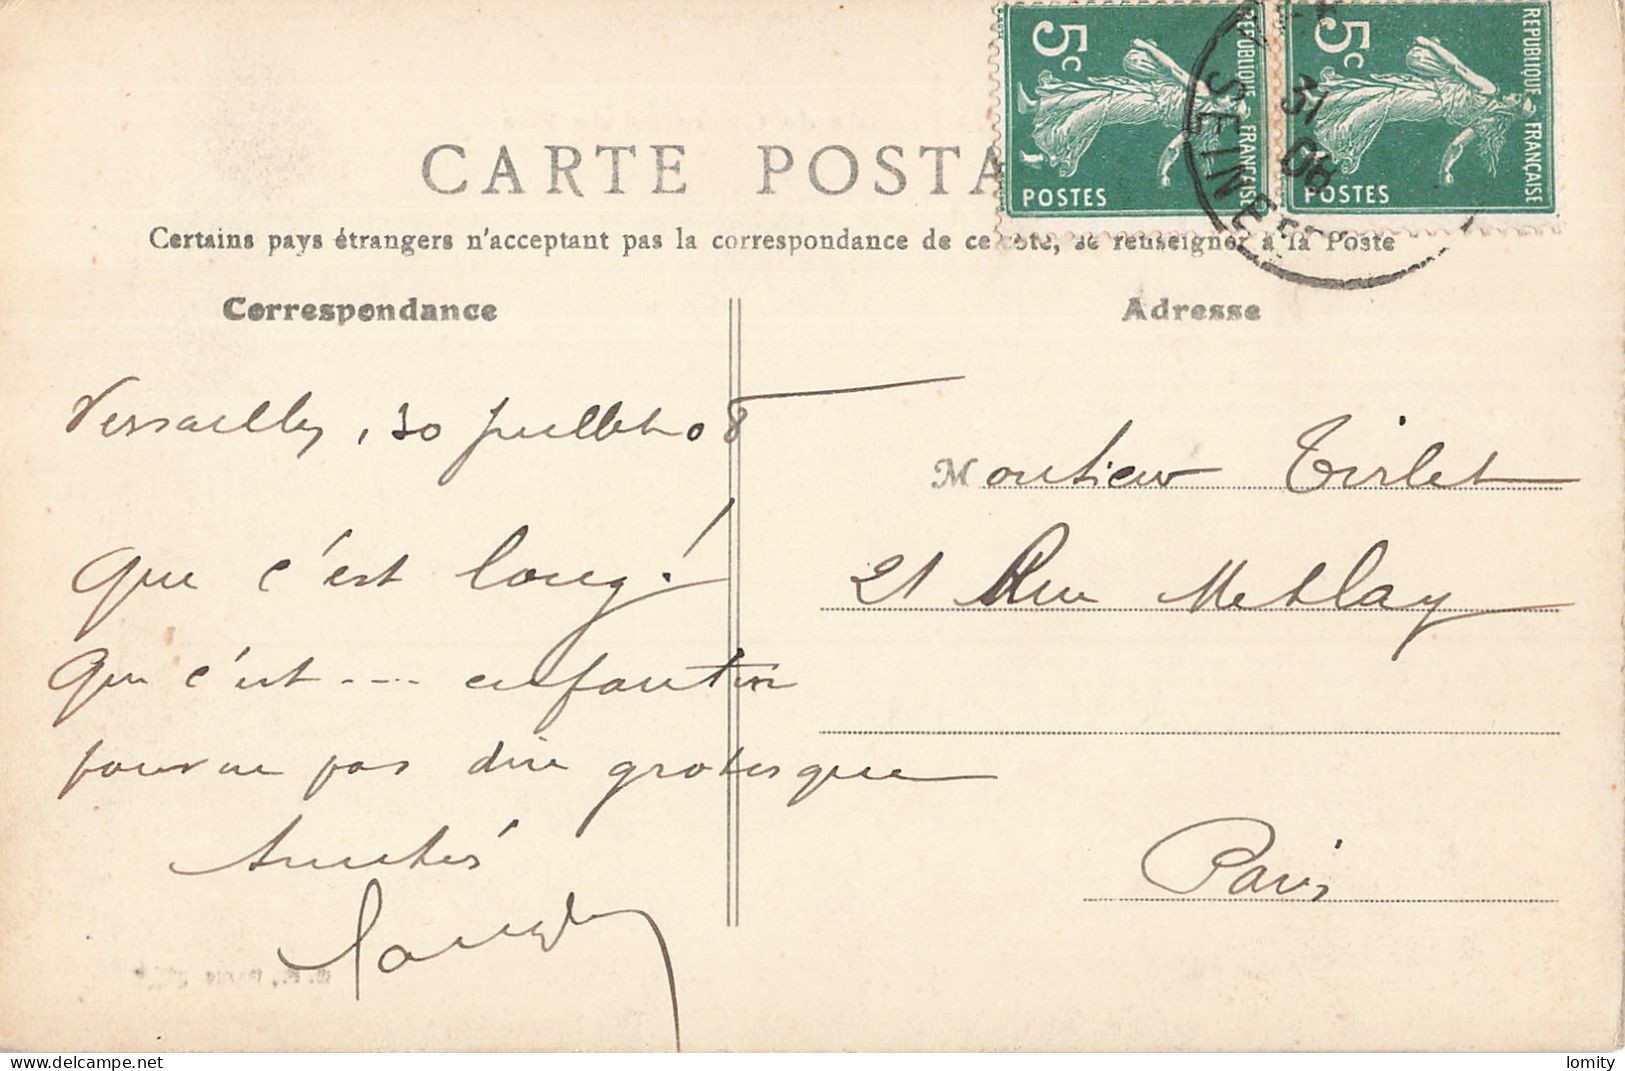 CARTE POSTA
5c
REPUBLIQUE FRANÇAISE
POSTES
5c
REPUBLIQUE FRANÇAISE
POSTES
31
08
SEINE
Certains pays étrangers n'acceptant pas la correspondance de ce côté, se renseigner à la Poste
Correspondance
Adresse
Versailles, 30 Juillet 08
Que c'est long!
Que c'est --- enfantin
pour ne pas dire grotesque
Amitiés
Monsieur Tirlet
21 Rue Meslay
Paris
www.delcampe.net
lomity